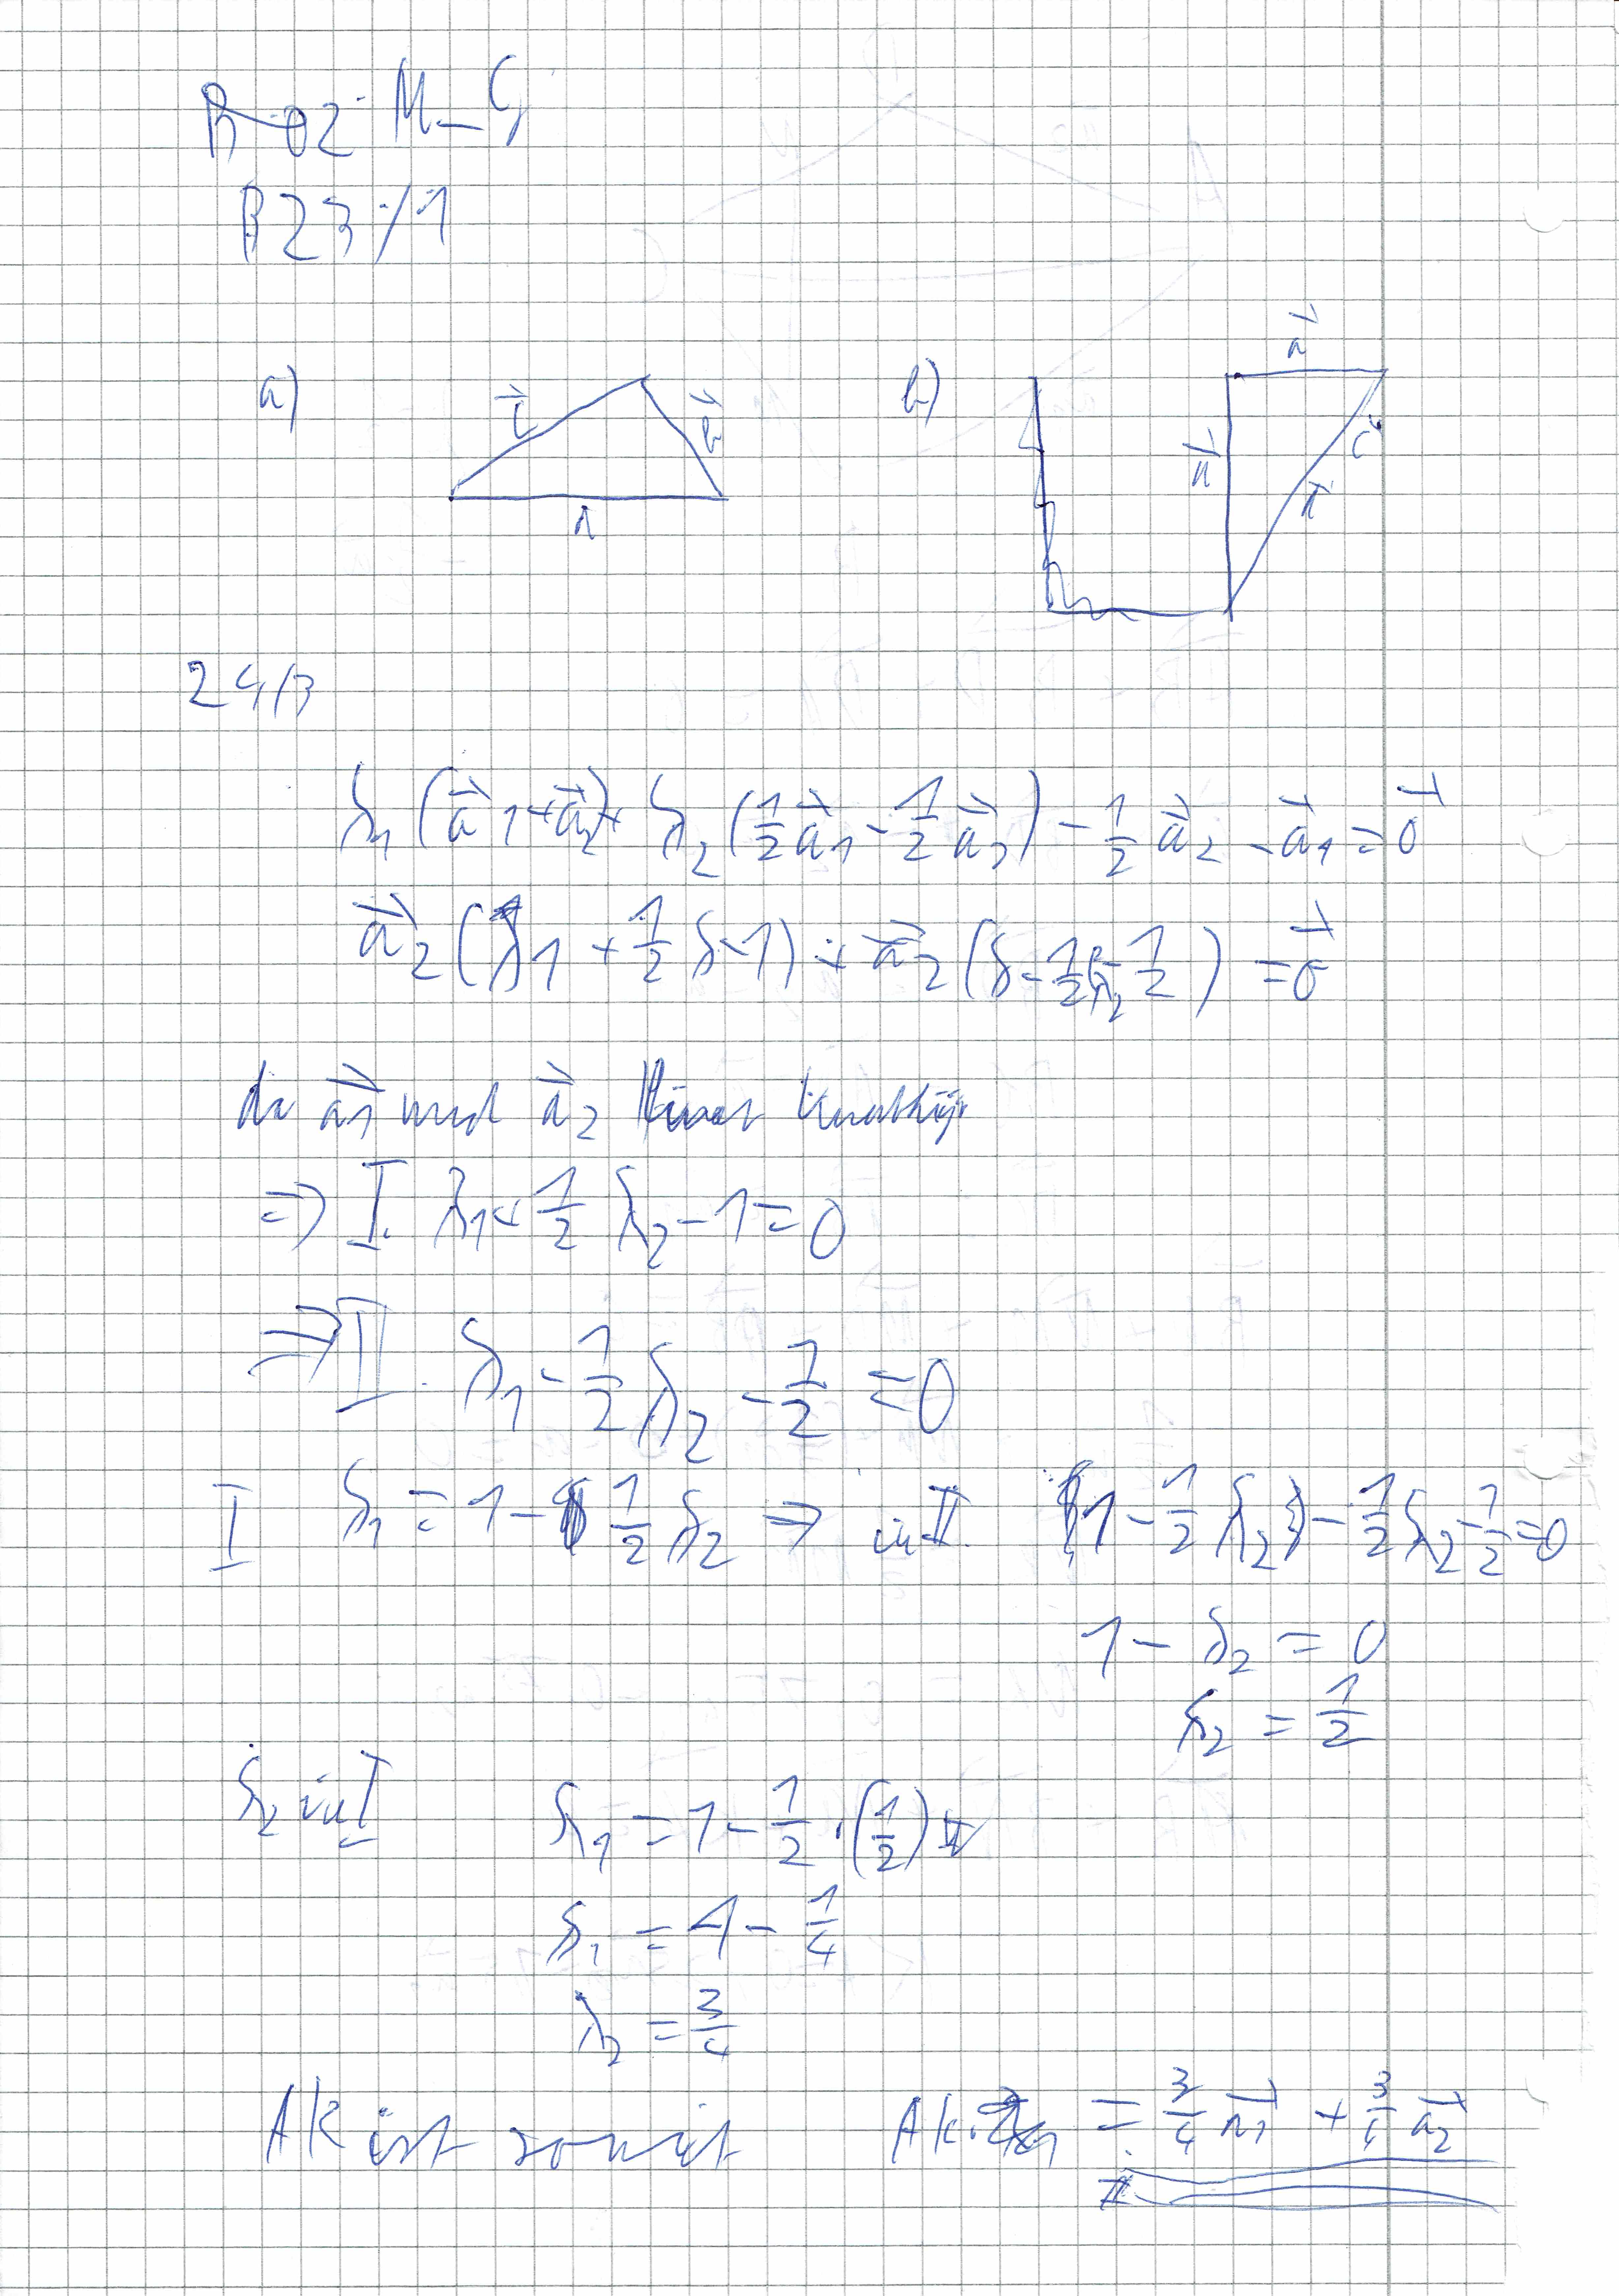 B 23/1
a)
b)
24/3
λ₁ (a⃗1 + a⃗2) + λ₂ (½ a⃗₁ - ½ a⃗₂) - ½ a⃗₂ - a⃗₁ = 0⃗
a⃗₂ (λ1 + ½ λ - 1) + a⃗₂ (λ - ½ λ₂ - ½) = 0⃗
da a⃗₁ und a⃗₂ linear
=> I. λ₁ + ½ λ₂ - 1 = 0
=> II. λ₁ - ½ λ₂ - ½ = 0
I λ₁ = 1 - ½ λ₂ => in II. {1 - ½ λ₂} - ½ λ₂ - ½ = 0
1 - λ₂ = 0
λ₂ = ½
λ₂ in I λ₁ = 1 - ½ · (½)
λ₁ = 1 - ¼
λ₂ = ¾
AK ist somit AK = ¾ a⃗₁ + ¾ a⃗₂